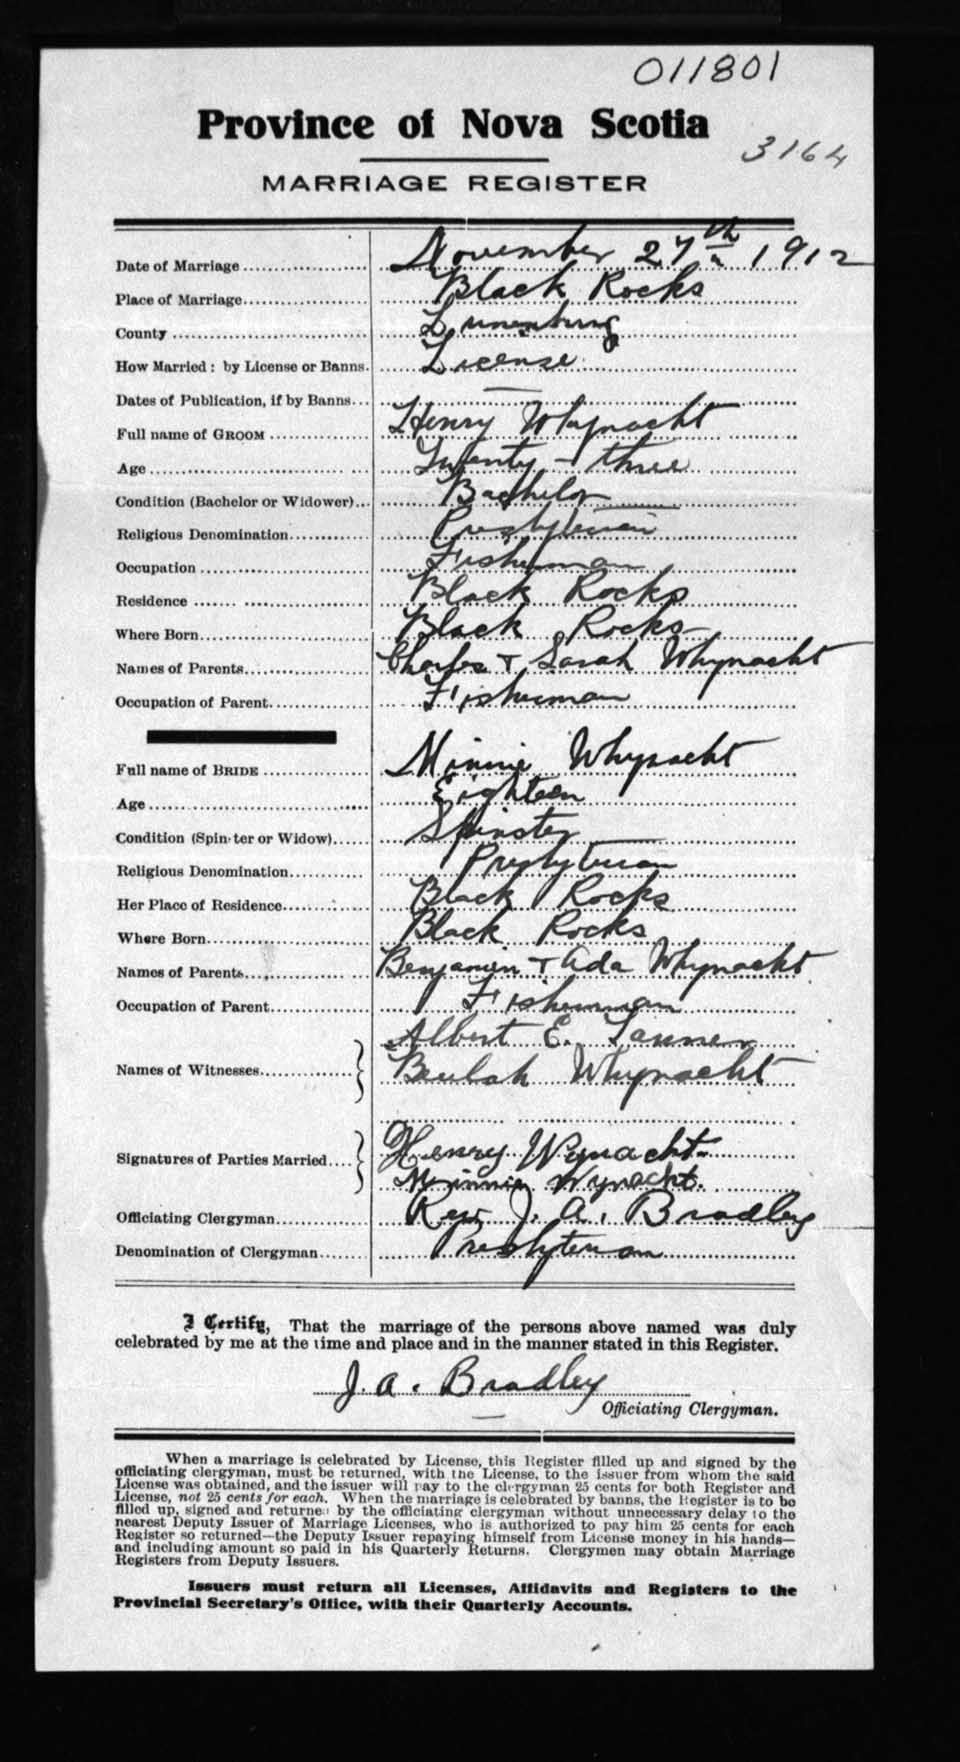 011801
Province of Nova Scotia
3164
MARRIAGE REGISTER
Date of Marriage November 27th 1912
Place of Marriage Black Rocks
County Lunenburg
How Married: by License or Banns. License
Dates of Publication, if by Banns... —
Full name of GROOM Henry Whynacht
Age Twenty-three
Condition (Bachelor or Widower)... Bachelor
Religious Denomination Presbyterian
Occupation Fisherman
Residence Black Rocks
Where Born Black Rocks
Names of Parents Charles + Sarah Whynacht
Occupation of Parent Fisherman
Full name of BRIDE Minnie Whynacht
Age Eighteen
Condition (Spinster or Widow) Spinster
Religious Denomination Presbyterian
Her Place of Residence Black Rocks
Where Born Black Rocks
Names of Parents Benjamin + Ada Whynacht
Occupation of Parent Fisherman
Names of Witnesses Albert E. Tanner
Beulah Whynacht
Signatures of Parties Married Henry Wynacht
Minnie Wynacht.
Officiating Clergyman Rev J. A. Bradley
Denomination of Clergyman Presbyterian
I Certify, That the marriage of the persons above named was duly
celebrated by me at the time and place and in the manner stated in this Register.
J. A. Bradley
Officiating Clergyman.
When a marriage is celebrated by License, this Register filled up and signed by the
officiating clergyman, must be returned, with the License, to the issuer from whom the said
License was obtained, and the issuer will pay to the clergyman 25 cents for both Register and
License, not 25 cents for each. When the marriage is celebrated by banns, the Register is to be
filled up, signed and returned by the officiating clergyman without unnecessary delay to the
nearest Deputy Issuer of Marriage Licenses, who is authorized to pay him 25 cents for each
Register so returned—the Deputy Issuer repaying himself from License money in his hands—
and including amount so paid in his Quarterly Returns. Clergymen may obtain Marriage
Registers from Deputy Issuers.
Issuers must return all Licenses, Affidavits and Registers to the
Provincial Secretary's Office, with their Quarterly Accounts.